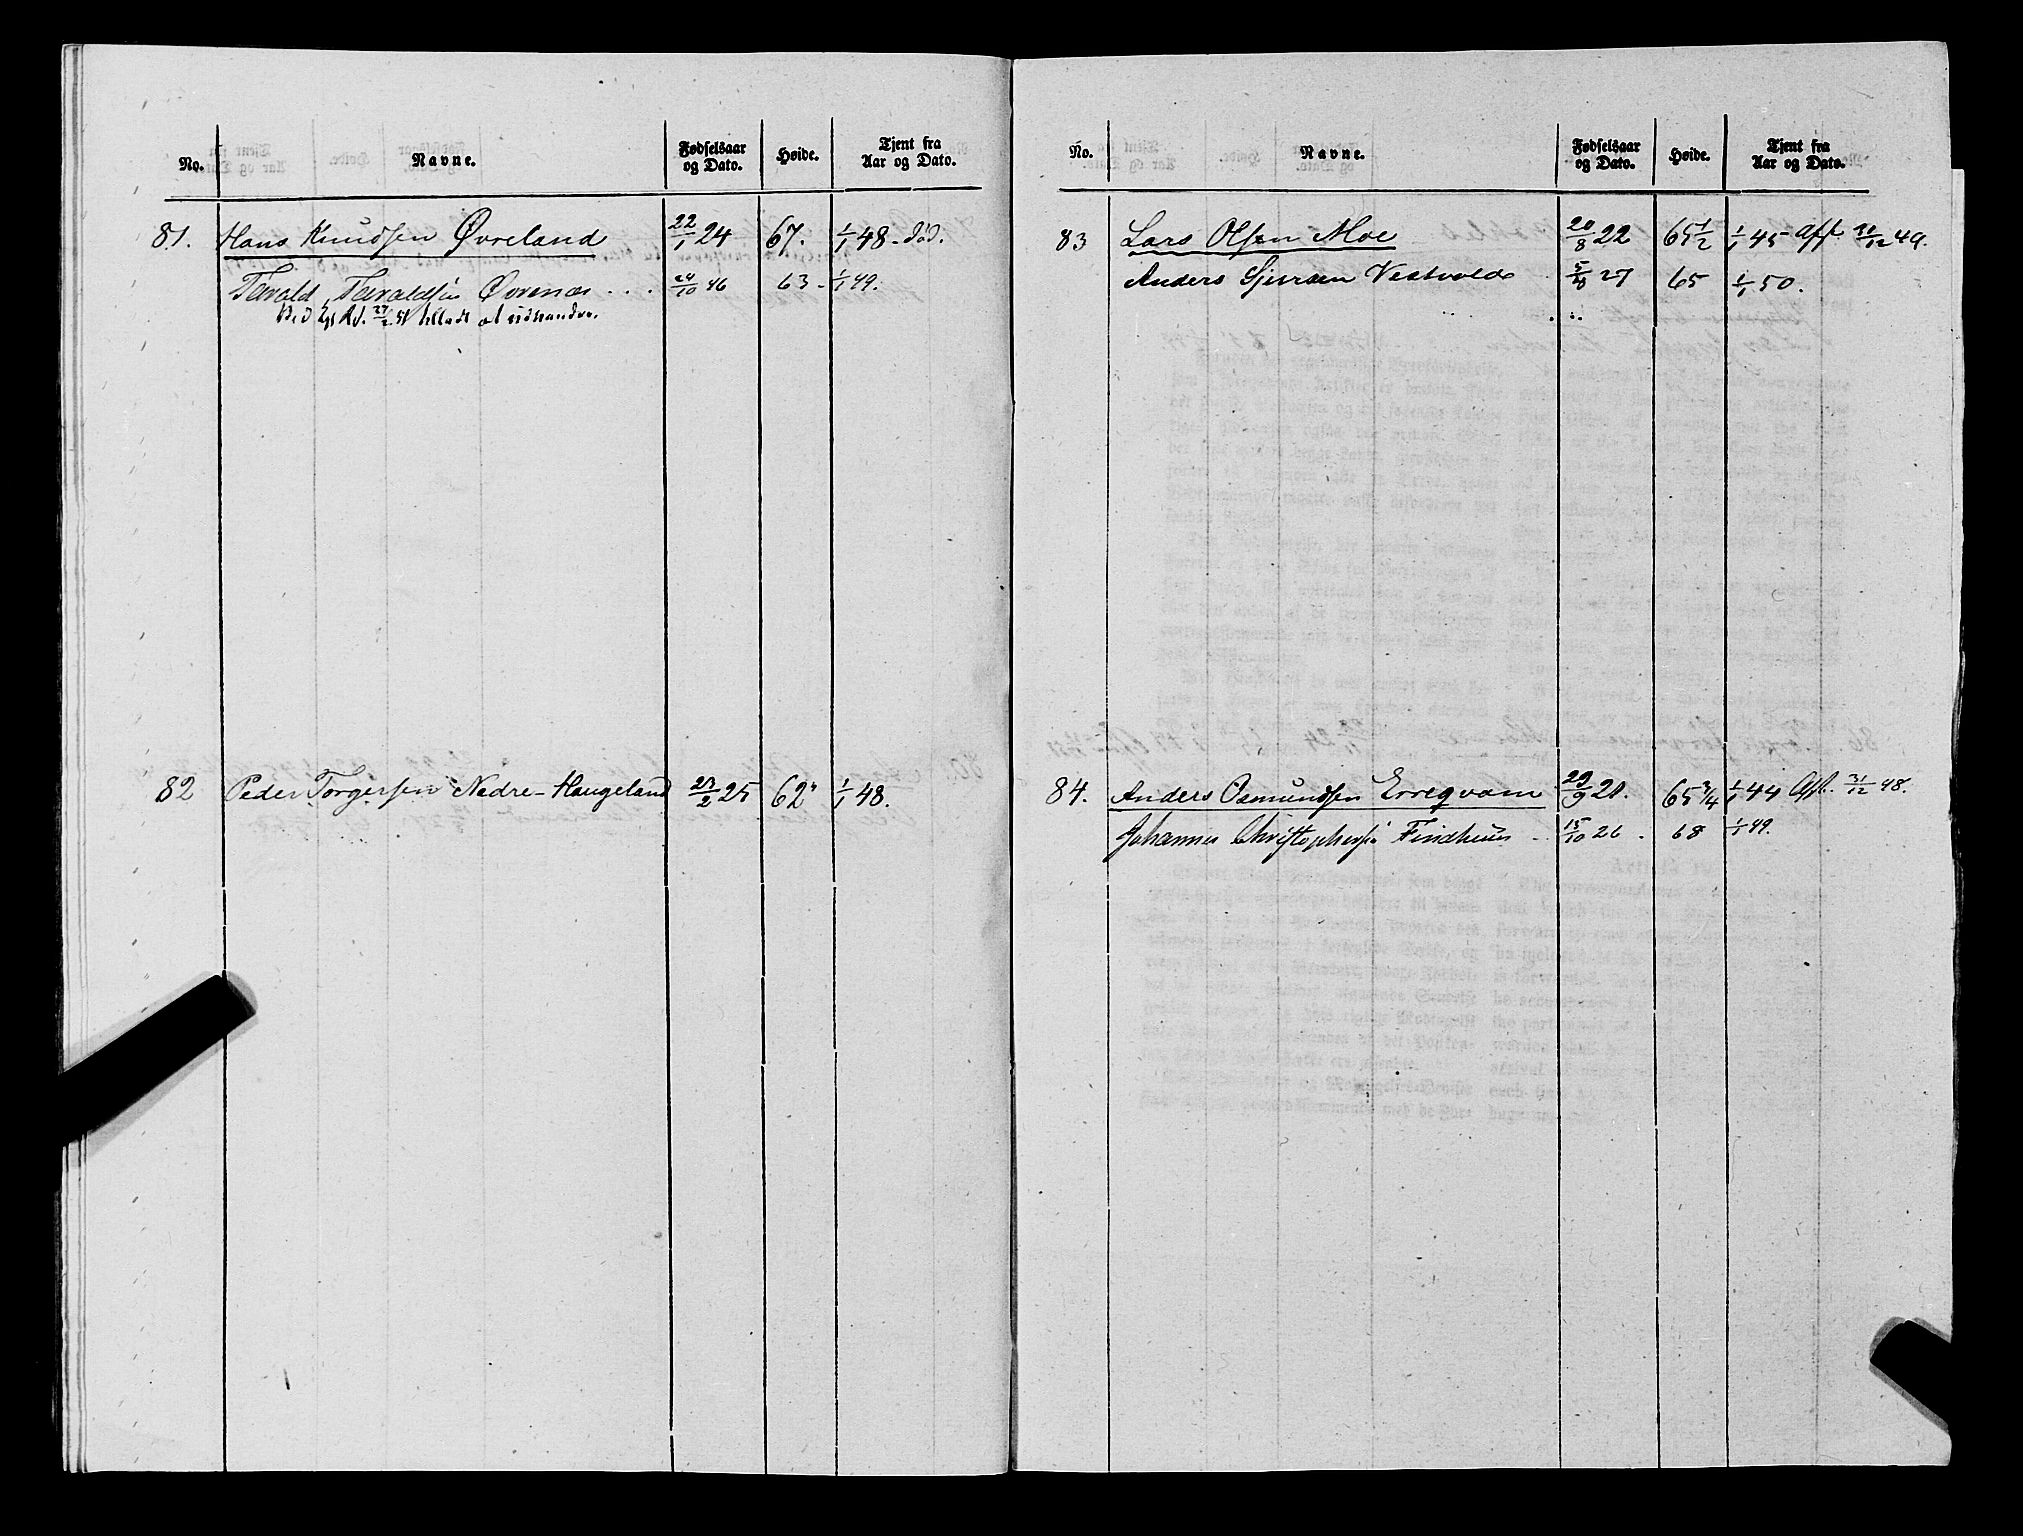 No. Navne. Fødselsaar og Dato. Høide. Tjent fra Aar og Dato.
81. Hans Knudsen Øvreland 22/1 24 67. 1/1 48 - død.
Tarald Taraldsen Øvrenæs . . . 24/10 26 63 - 1/1 49.
27/2 51 tilladt at udvandre.
82 Peder Torgersen Nedre-Haugeland 23/2 25 62" 1/1 48.
No. Navne. Fødselsaar og Dato. Høide. Tjent fra Aar og Dato.
83 Lars Olsen Moe 20/8 22 65 1/2 1/1 45 Afsk. 31/12 49.
Anders Sjursen Vestvold 27 65 1/1 50.
84. Anders Osmundsen Erreqvam 29/9 21. 65 3/4 1/1 44 Afsk. 31/12 48.
Johannes Christophersen Findhuus - 15/10 26 - 68 1/1 49.